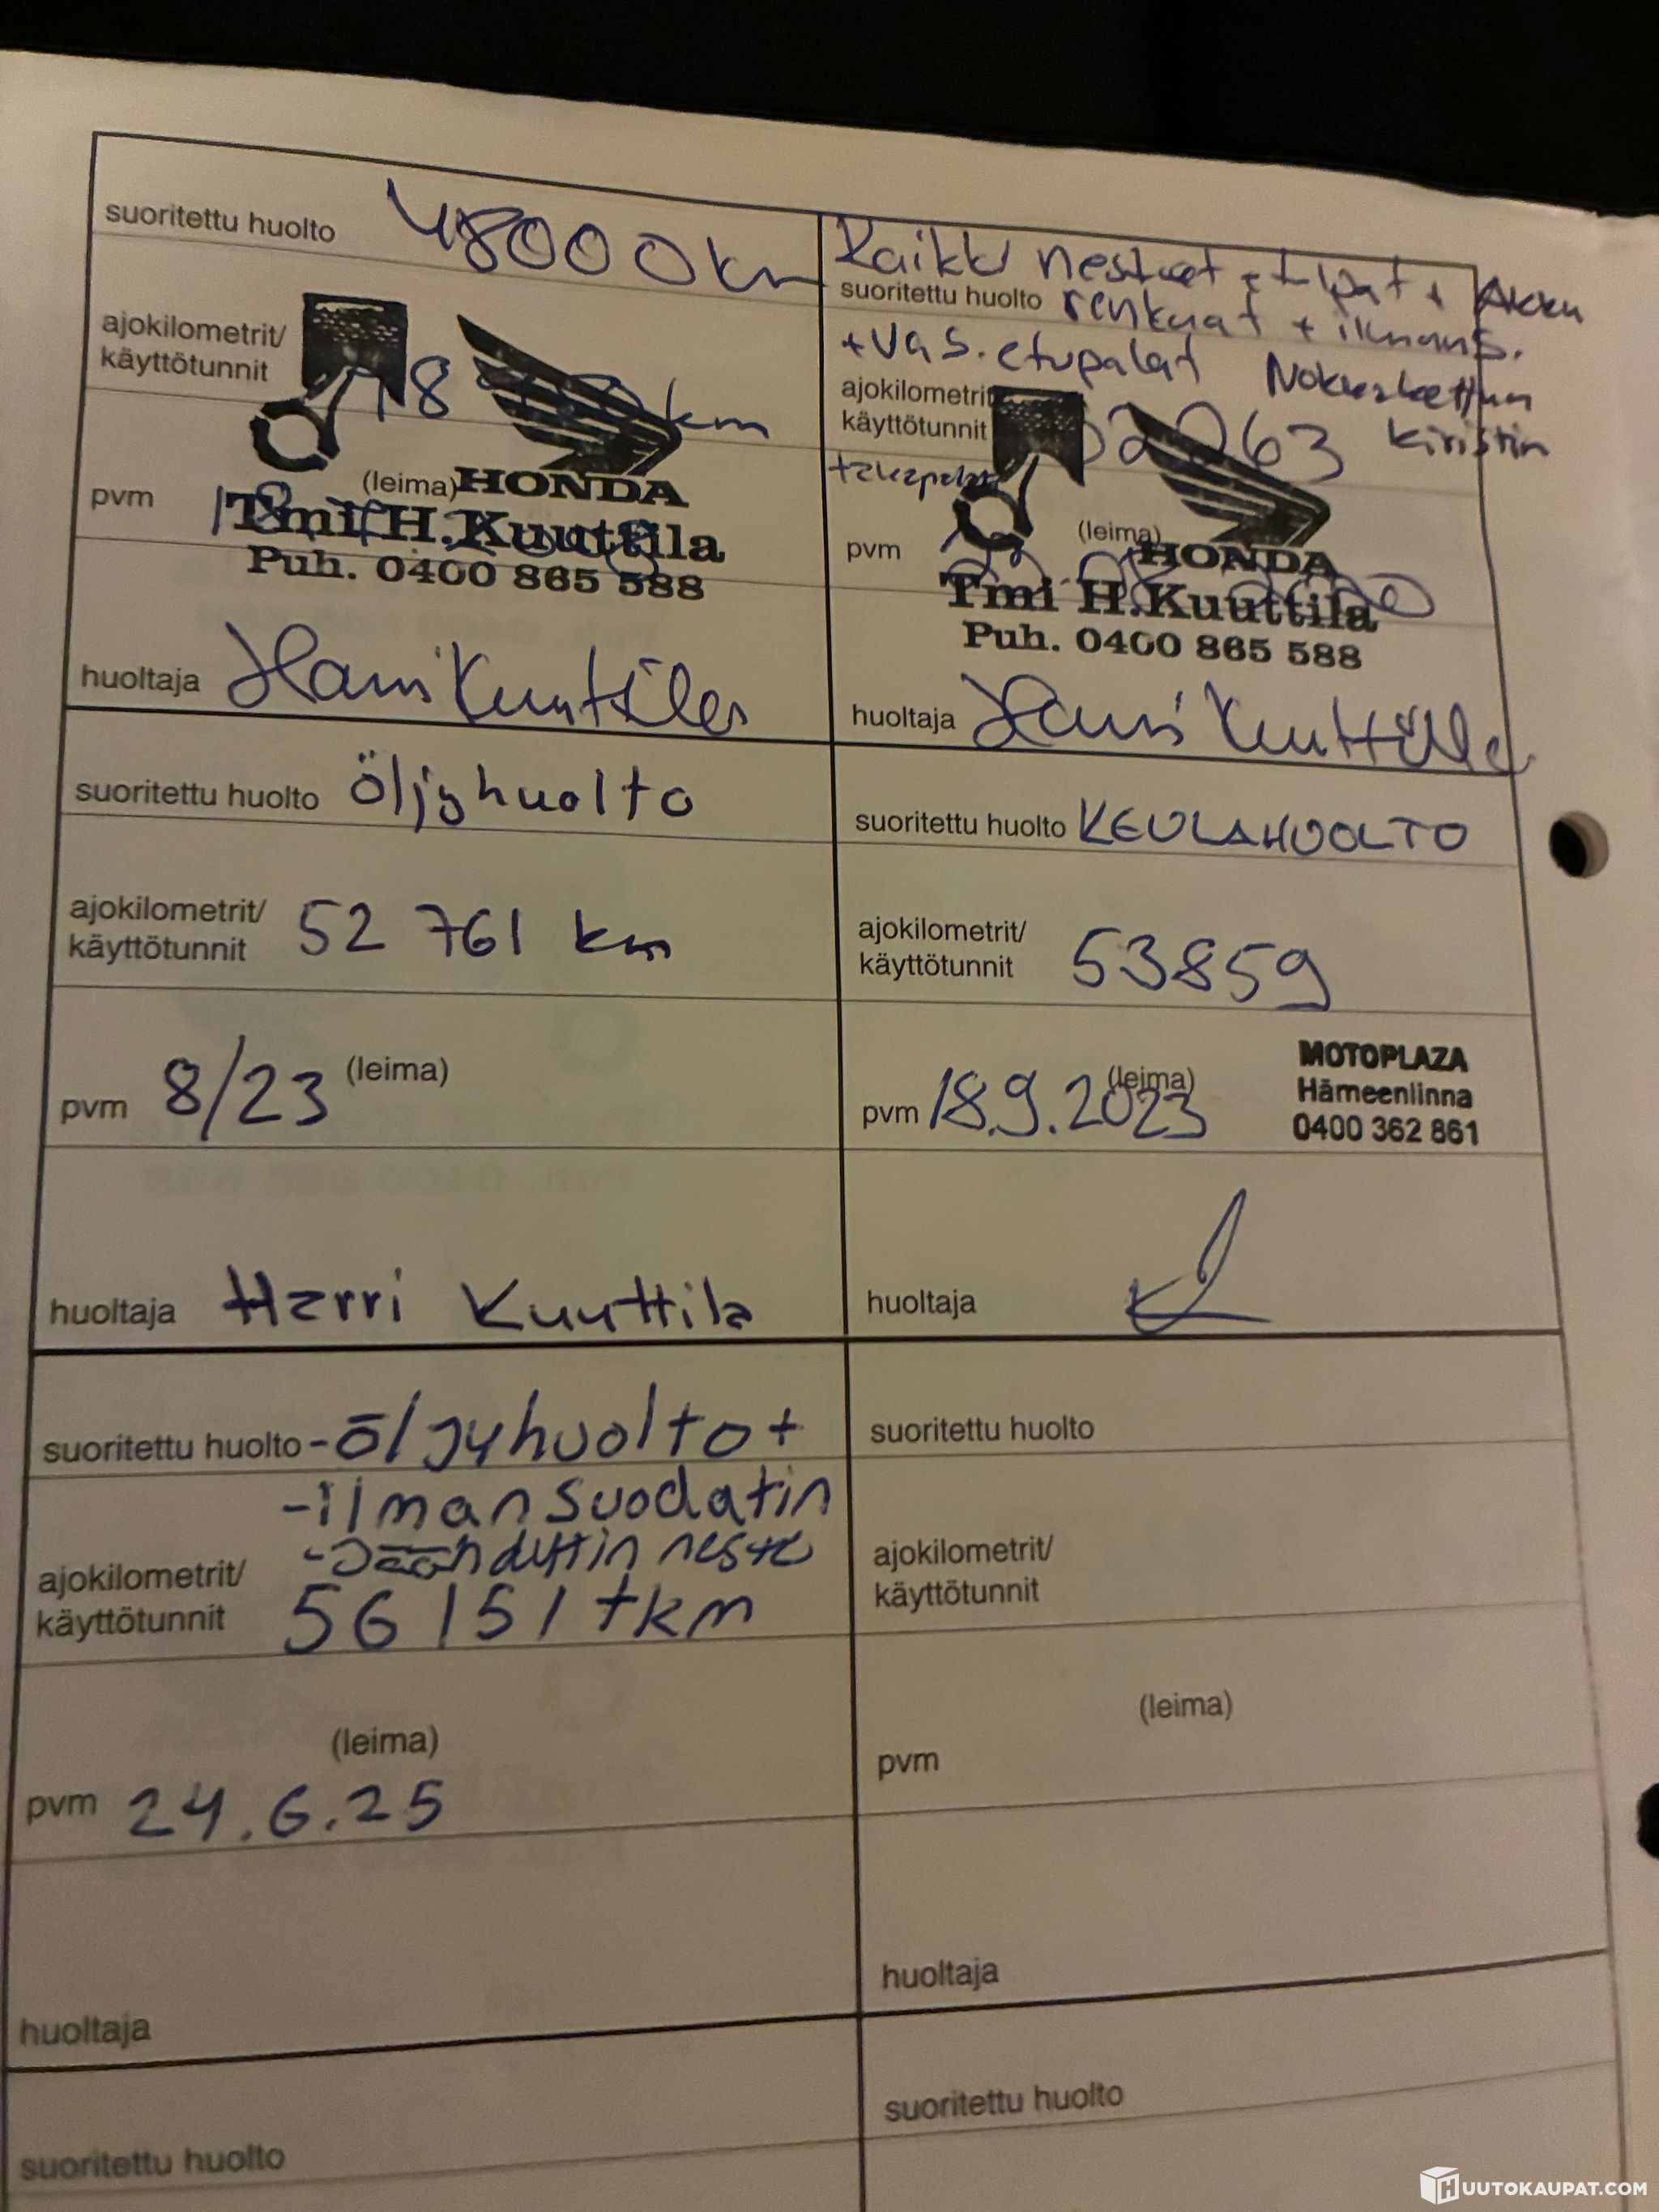 suoritettu huolto 48000 km
ajokilometrit/
käyttötunnit km
(leima) HONDA
pvm
Tmi H.Kuuttila
Puh. 0400 865 588
huoltaja Harri Kuuttila
Kaikki nesteet + t-lpat + Akku
suoritettu huolto renkaat + ilmans.
+ vas. etupalat Nokkaketjun
ajokilometrit/
käyttötunnit 52063 kiristin
+takapalat
(leima) HONDA
pvm
Tmi H.Kuuttila
Puh. 0400 865 588
huoltaja Harri Kuuttila
suoritettu huolto öljyhuolto
ajokilometrit/
käyttötunnit 52 761 km
pvm 8/23 (leima)
huoltaja Harri Kuuttila
suoritettu huolto KEULAHUOLTO
ajokilometrit/
käyttötunnit 53859
pvm 18.9.2023 (leima)
MOTOPLAZA
Hämeenlinna
0400 362 861
huoltaja
suoritettu huolto -öljyhuolto +
-ilmansuodatin
-Jäähdyttin neste
ajokilometrit/
käyttötunnit 56151 tkm
(leima)
pvm 24.6.25
huoltaja
suoritettu huolto
ajokilometrit/
käyttötunnit
(leima)
pvm
huoltaja
suoritettu huolto
suoritettu huolto
HUUTOKAUPAT.COM